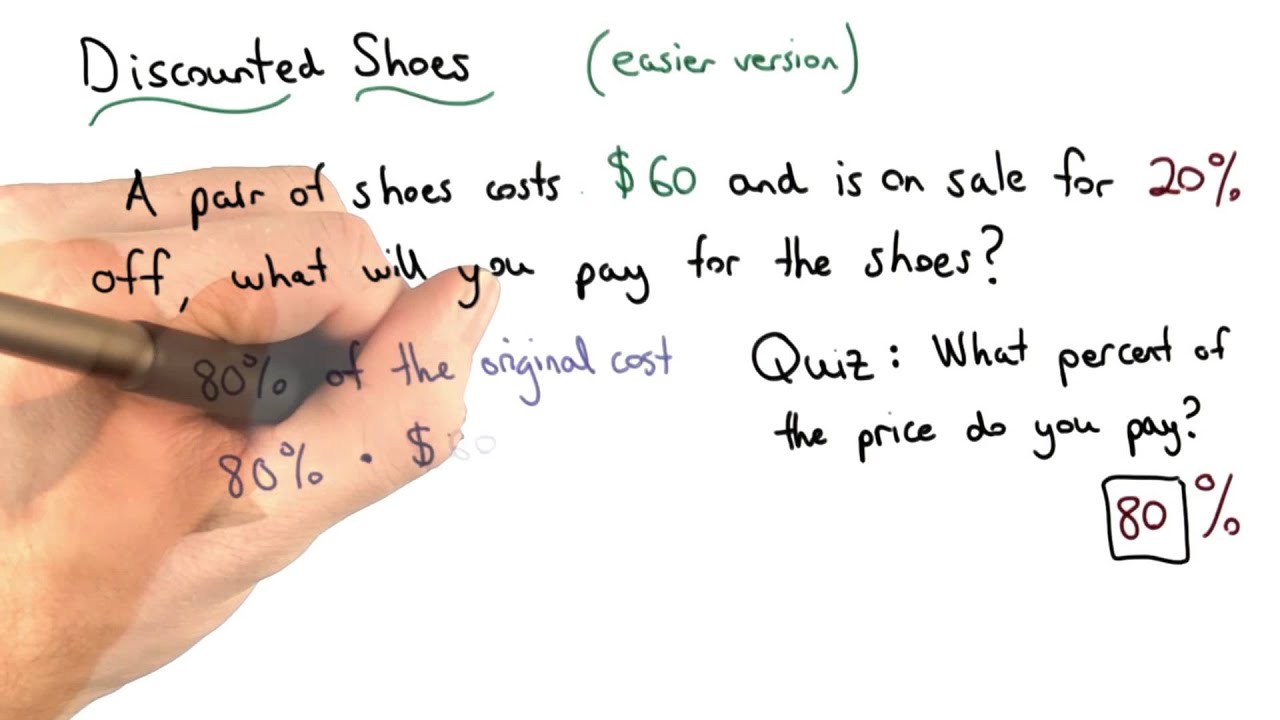 Discounted Shoes (easier version)
A pair of shoes costs $60 and is on sale for 20%
off, what will you pay for the shoes?
80% of the original cost
80% · $60
Quiz: What percent of
the price do you pay?
80 %